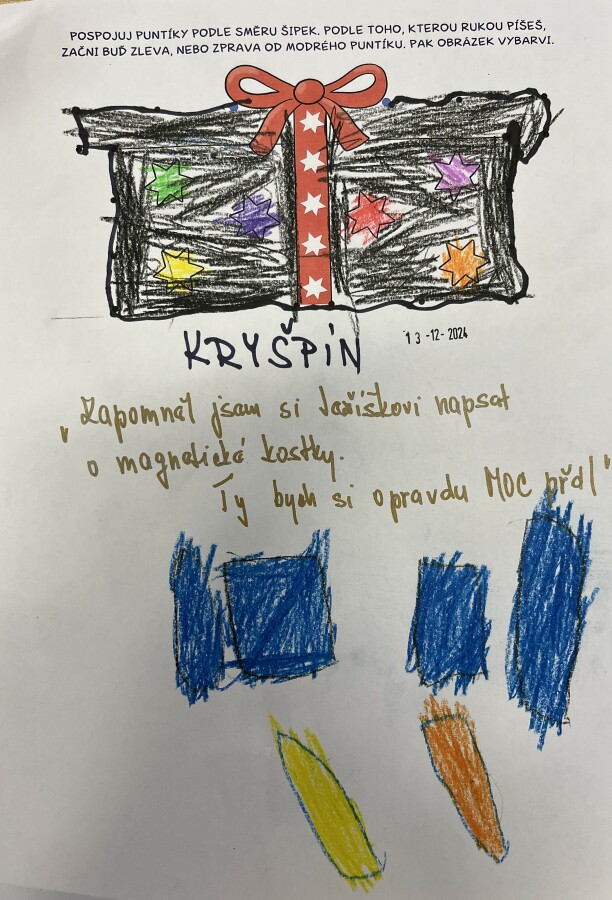 SPOSPOJUJ PUNTÍKY PODLE SMĚRU ŠIPEK. PODLE TOHO, KTEROU RUKOU PÍŠEŠ,
ZAČNI BUĎ ZLEVA, NEBO ZPRAVA OD MODRÉHO PUNTÍKU. PAK OBRÁZEK VYBARVI.
KRYŠPÍN
13-12-2024
„Zapomněl jsem si Ježíškovi napsat
o magnetické kostky.
Ty bych si opravdu MOC přál"